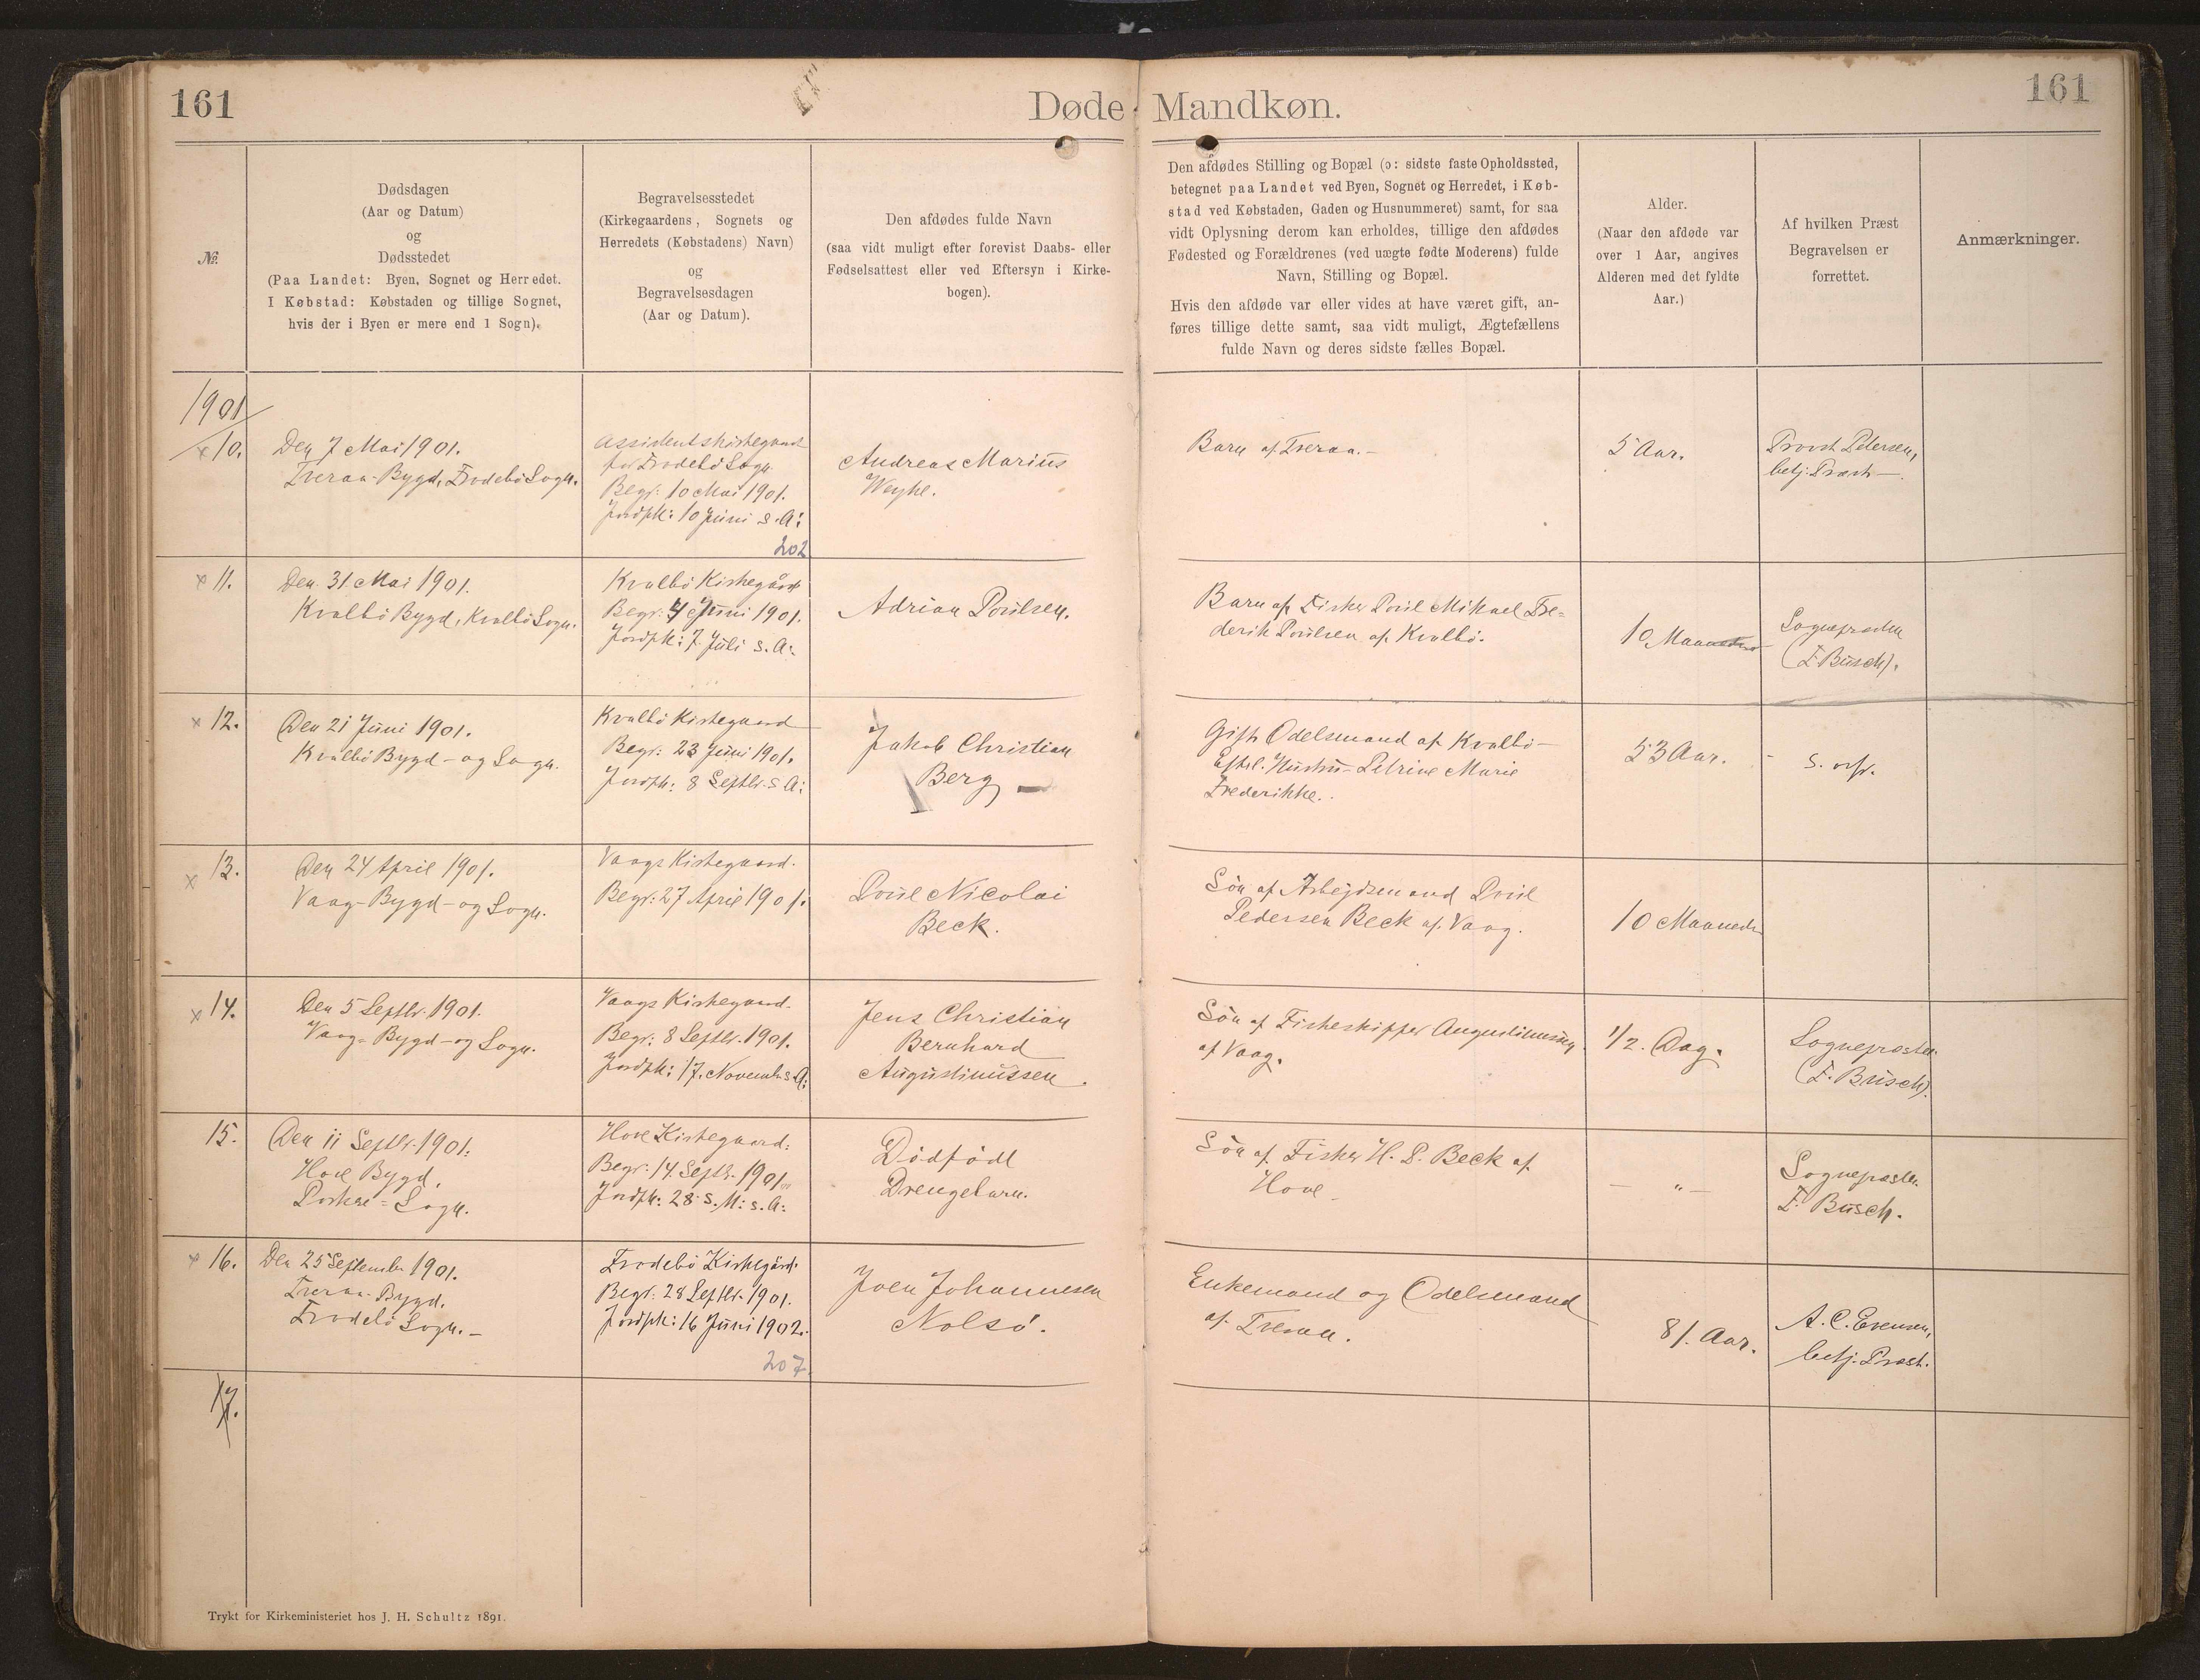 161
Døde Mandkøn.
161
№
Dødsdagen
(Aar og Datum)
og
Dødsstedet
(Paa Landet: Byen, Sognet og Herredet.
I Købstad: Købstaden og tillige Sognet,
hvis der i Byen er mere end 1 Sogn).
Begravelsesstedet
(Kirkegaardens, Sognets og
Herredets (Købstadens) Navn)
og
Begravelsesdagen
(Aar og Datum).
Den afdødes fulde Navn
(saa vidt muligt efter forevist Daabs- eller
Fødselsattest eller ved Eftersyn i Kirke-
bogen).
Den afdødes Stilling og Bopæl (ɔ: sidste faste Opholdssted,
betegnet paa Landet ved Byen, Sognet og Herredet, i Køb-
stad ved Købstaden, Gaden og Husnummeret) samt, for saa
vidt Oplysning derom kan erholdes, tillige den afdødes
Fødested og Forældrenes (ved uægte fødte Moderens) fulde
Navn, Stilling og Bopæl.
Hvis den afdøde var eller vides at have været gift, an-
føres tillige dette samt, saa vidt muligt, Ægtefællens
fulde Navn og deres sidste fælles Bopæl.
Alder.
(Naar den afdøde var
over 1 Aar, angives
Alderen med det fyldte
Aar.)
Af hvilken Præst
Begravelsen er
forrettet.
Anmærkninger.
1901
x 10.
Den 7 Mai 1901.
Tveraa-Bygd, Frodebø Sogn.
Assistentskirkegaard
for Frodebø Sogn.
Begr: 10 Mai 1901.
Jordpk: 10 Juni s. A:
202
Andreas Marius
Weyhe.
Barn af Tveraa.-
5 Aar.
Provst Petersen,
betj. Præst-
x 11.
Den 31. Mai 1901.
Kvalbø Bygd, Kvalbø Sogn.
Kvalbø Kirkegård
Begr: 4 Juni 1901.
Jordpk: 7 Juli s. A:
Adrian Poulsen.
Barn af Fisker Poul Mikael Fre=
derik Poulsen af Kvalbø.
10 Maaneder
Sognepræsten
(F. Busch).
x 12.
Den 21 Juni 1901.
Kvalbø Bygd - og Sogn.
Kvalbø Kirkegaard
Begr: 23 Juni 1901.
Jordpk: 8 Septbr. s A:
Jakob Christian
Berg
Gift Odelsmand af Kvalbø-
Eftel. Hustru- Petrine Marie
Frederikke.
53 Aar.
s. ovfr.
x 13.
Den 24 April 1901.
Vaag-Bygd-og Sogn.
Vaags Kirkegaard.
Begr: 27 April 1901.
Poul Nicolai
Beck.
Søn af Arbejdsmand Poul
Pedersen Beck af Vaag.
10 Maaneder
x 14.
Den 5 Septbr. 1901.
Vaag- Bygd-og Sogn.
Vaags Kirkegaard.
Begr: 8 Septbr. 1901.
Jordpk: 17. Novemb. s. A:
Jens Christian
Bernhard
Augustinussen.
Søn af Fiskeskipper Augustinussen
af Vaag.
1/2. Dag.
Sognepræsten
(F. Busch).
15.
Den 11 Septbr. 1901.
Hove Bygd.
Porkere = Sogn.
Hove Kirkegaard:
Begr: 14 Septbr. 1901.
Jordpk: 28 s. M: s. A:
Dødfødt
Drengebarn.
Søn af Fisker H. P. Beck af
Hove
- " -
Sognepræsten
F. Busch.
x 16.
Den 25 September 1901.
Tveraa-Bygd.
Frodebø Sogn.-
Frodebø Kirkegård.
Begr: 28 Septbr. 1901.
Jordpk: 16 Juni 1902.
207
Joen Johannesen
Nolsø.
Enkemand og Odelsmand
af Tveraa.
81. Aar.
A. C. Evensen,
betj. Præst.
17.
Trykt for Kirkeministeriet hos J. H. Schultz 1891.